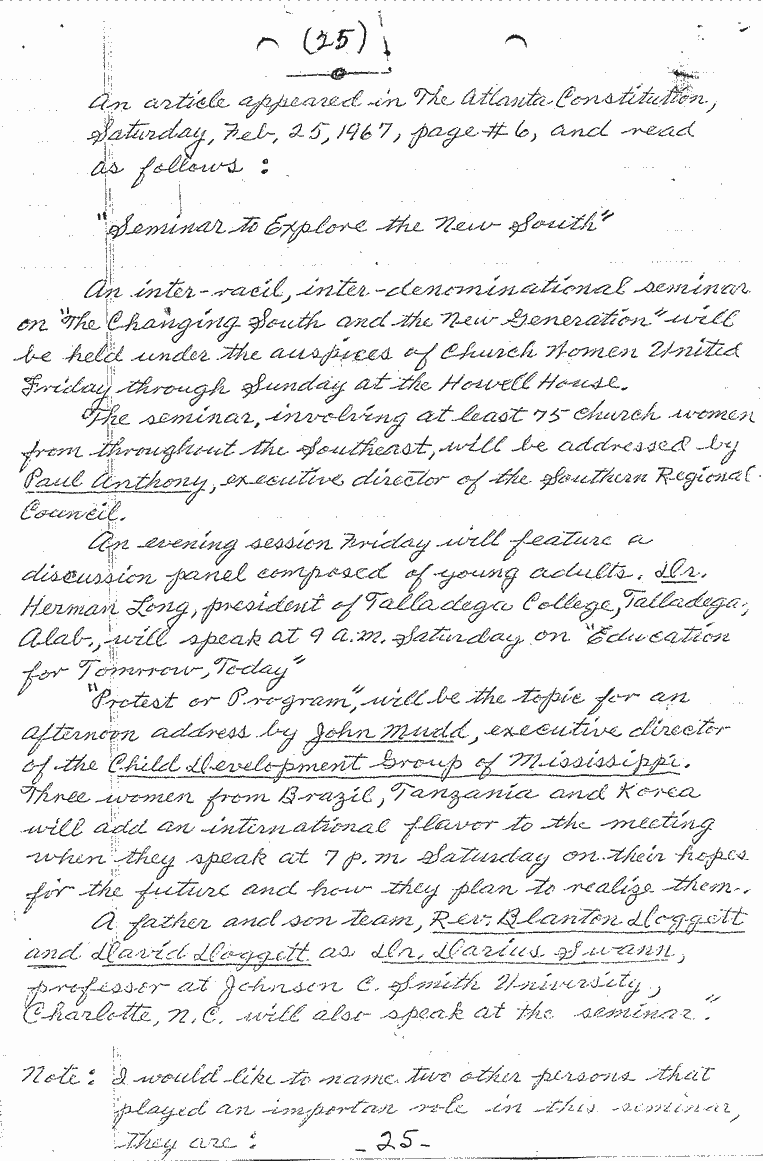 (25)
An article appeared in The Atlanta Constitution,
Saturday, Feb, 25, 1967, page # 6, and read
as follows :
"Seminar to Explore the New South"
An inter-racil, inter-denominational seminar
on "The Changing South and the New Generation" will
be held under the auspices of Church Women United
Friday through Sunday at the Howell House.
The seminar, involving at least 75 church women
from throughout the Southeast, will be addressed by
Paul Anthony, executive director of the Southern Regional
Council.
An evening session Friday will feature a
discussion panel composed of young adults. Dr.
Herman Long, president of Talladega College, Talladega,
Alab., will speak at 9 a.m. Saturday on "Education
for Tomrrow, Today"
"Protest or Program", will be the topic for an
afternoon address by John Mudd, executive director
of the Child Development Group of Mississippi.
Three women from Brazil, Tanzania and Korea
will add an international flavor to the meeting
when they speak at 7 p.m Saturday on their hopes
for the future and how they plan to realize them.
A father and son team, Rev. Blanton Doggett
and David Doggett as Dr. Darius Swann,
professor at Johnson C. Smith University,
Charlotte, N.C. will also speak at the seminar."
Note: I would like to name two other persons that
played an importan role in this seminar,
they are :
- 25 -